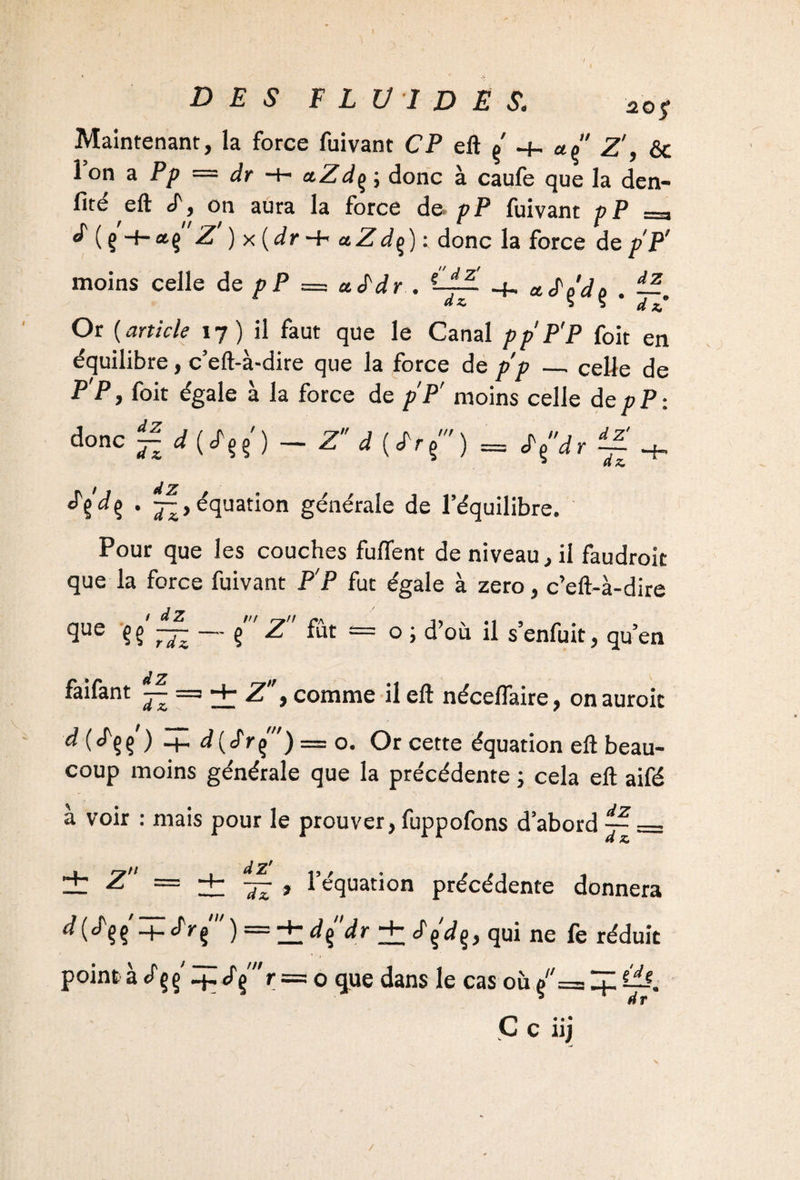 DES FLUIDES. 205
Maintenant, la force ſuivant CP eſt ρ' + αρ'' Z', &
l'on a Pp = dr + αZdρ ; donc à cauſe que la den-
ſité eſt δ, on aura la force de pP ſuivant pP =
δ (ρ' + αρ'' Z') x (dr + αZdρ) : donc la force de p'P'
moins celle de pP = αδdr . ρ''dZ'/dz + αδρ'dρ . dZ/dz.
Or (article 17) il faut que le Canal pp'P'P ſoit en
équilibre, c'eſt-à-dire que la force de p'p — celle de
P'P, ſoit égale à la force de p'P' moins celle de pP :
donc dZ/dz d (δρρ') — Z'' d (δrρ''') = δρ''dr dZ'/dz +
δρ'dρ . dZ/dz, équation générale de l'équilibre.
Pour que les couches fuſſent de niveau, il faudroit
que la force ſuivant P'P fut égale à zero, c'eſt-à-dire
que ρρ' dZ/rdz — ρ''' Z'' fût = 0 ; d'où il s'enſuit, qu'en
faiſant dZ/dz = ± Z'', comme il eſt néceſſaire, on auroit
d (δρρ') ∓ d (δrρ''') = 0. Or cette équation eſt beau-
coup moins générale que la précédente ; cela eſt aiſé
à voir : mais pour le prouver, ſuppoſons d'abord dZ/dz =
± Z'' = ± dZ'/dz, l'équation précédente donnera
d (δρρ' ∓ δrρ''') = ± dρ''dr ± δρ'dρ, qui ne ſe réduit
point à δρρ' ∓ δρ''' r = 0 que dans le cas où ρ'' = ∓ ρ'dρ/dr.
C c iij